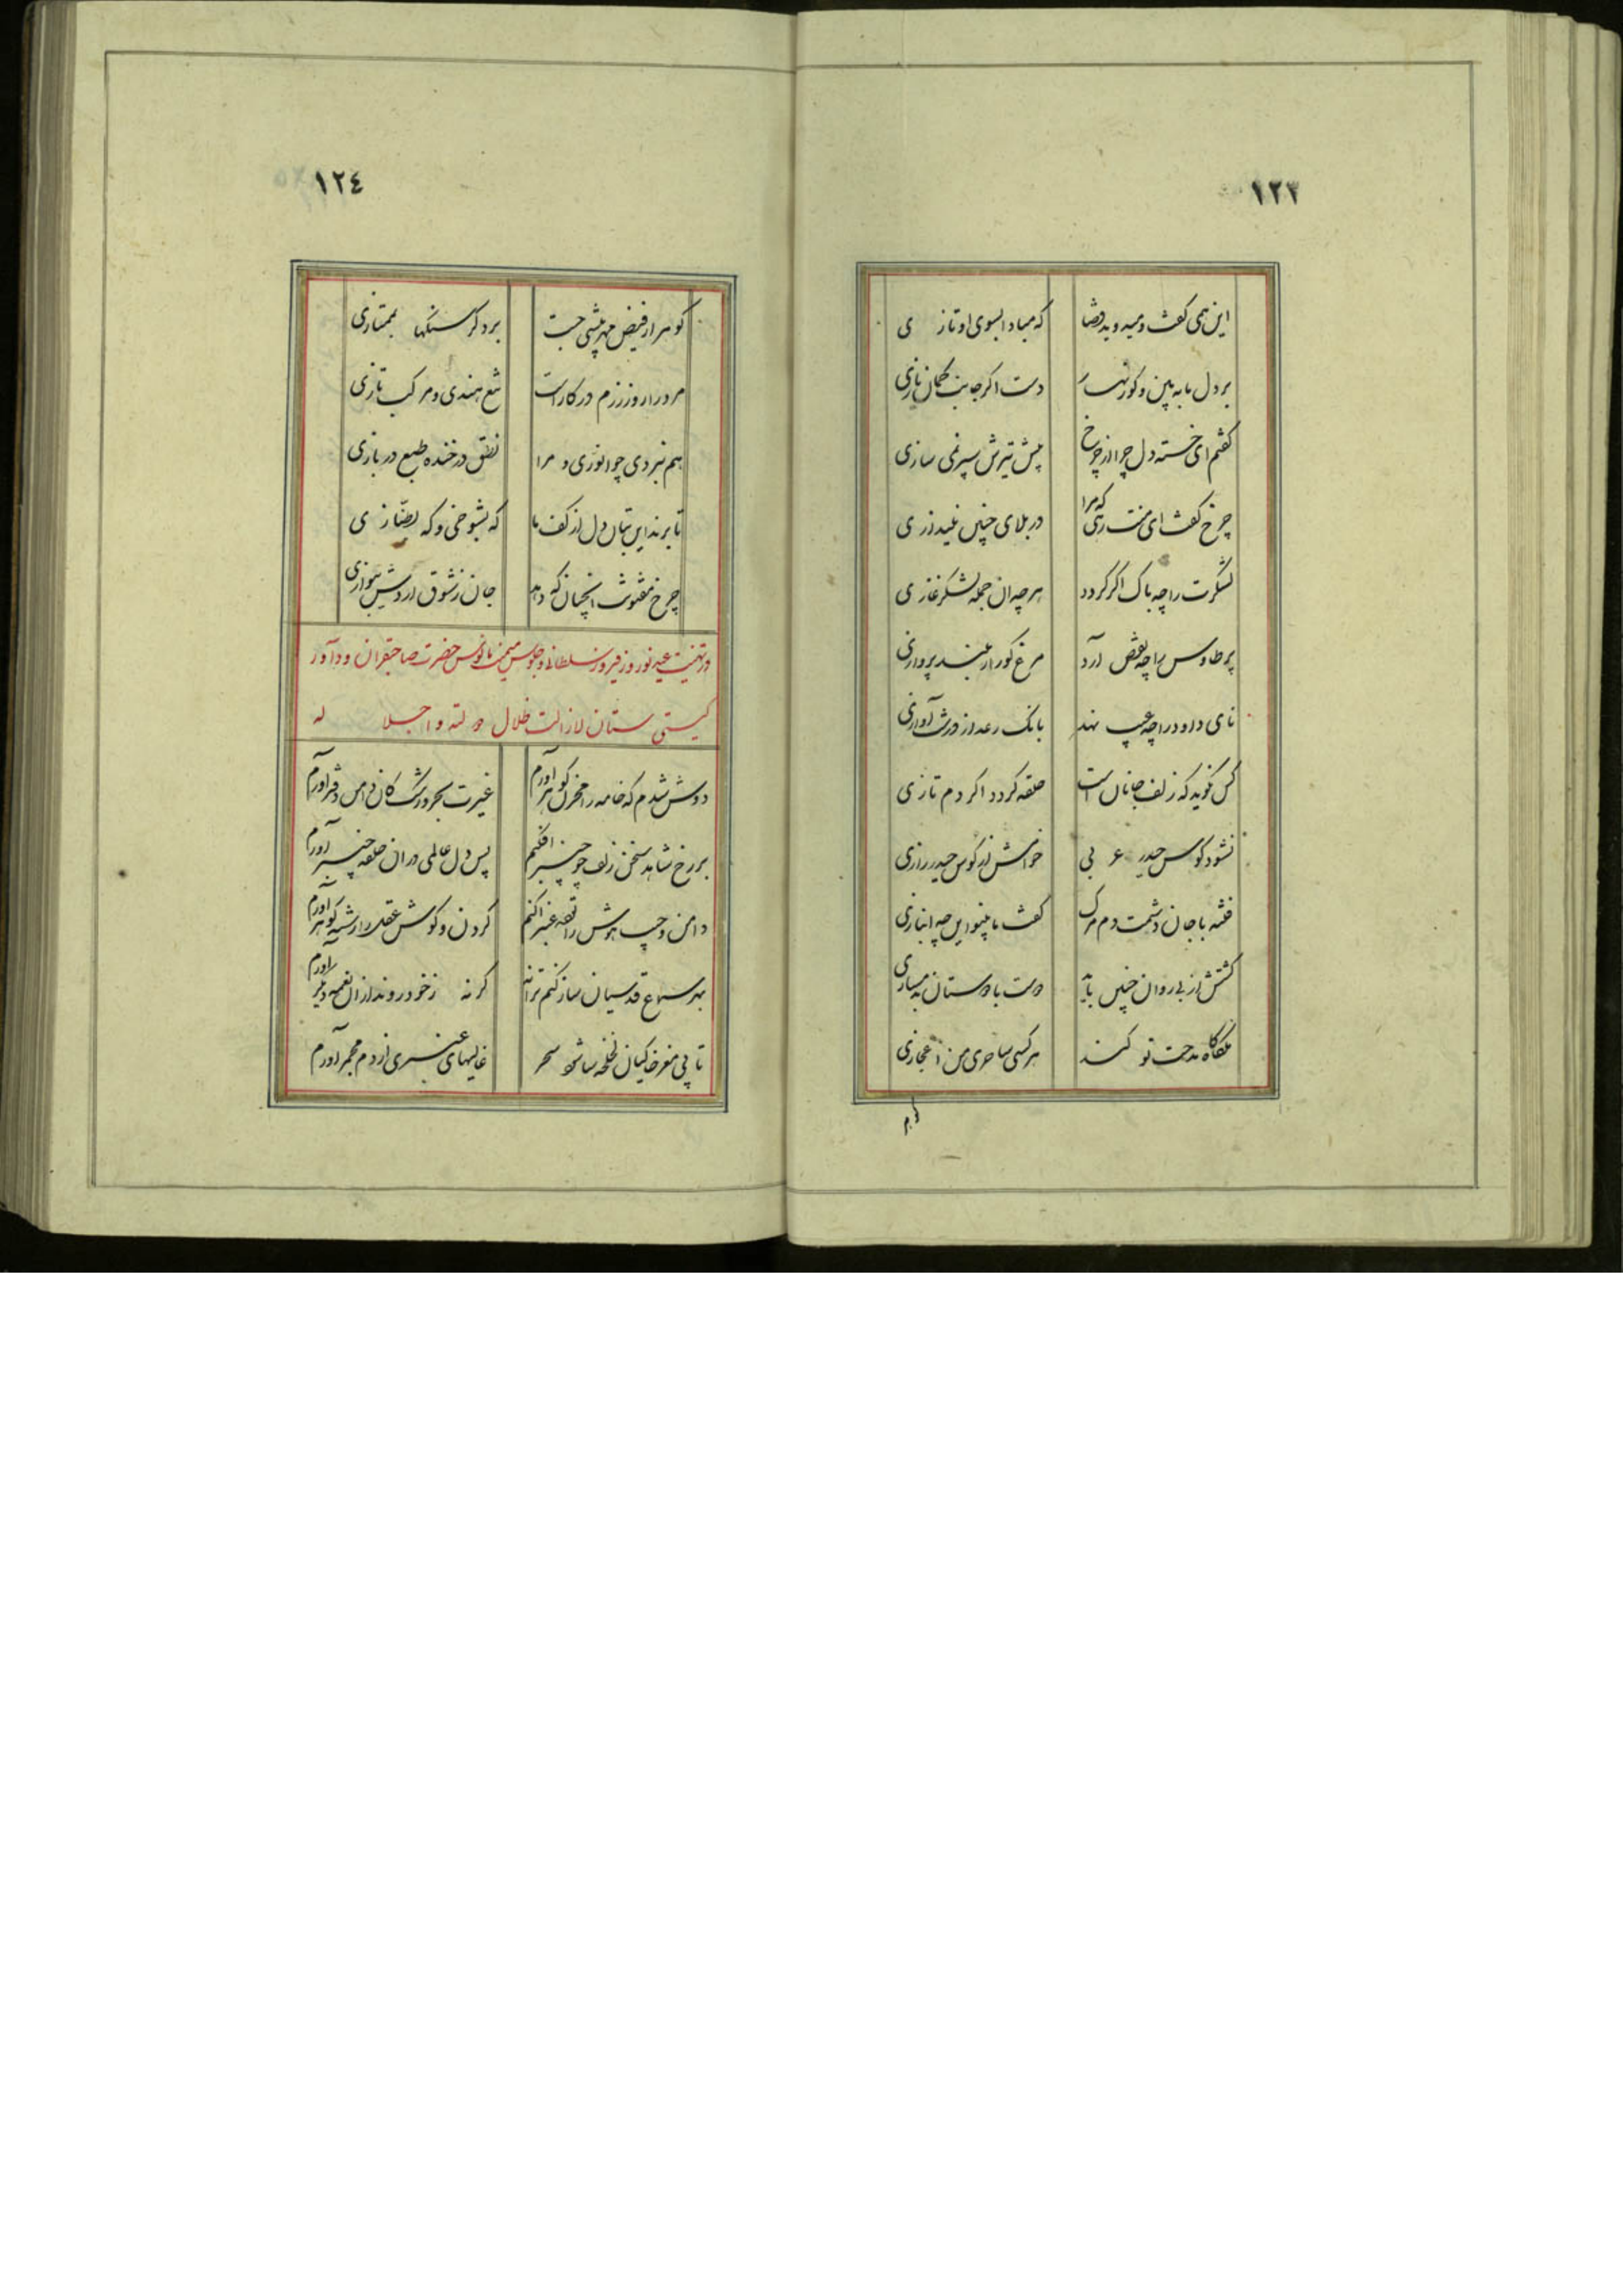 ١٢٣
این همی گفت و میدوید قضا که مبادا بسوی او تازی
بر دل ما به بین و کور دست اگر جانب کمان یازی
گفتم ای خسته دل چرا از چرخ پیش تیرش سپر نمی سازی
چرخ گفت ای که مرا در بلای چنین نیندازی
لشکرت را چه باک اگر گردد هر چه از جمله لشکر غازی
پر طاوس را چه نقص آرد مرغ کور ار بلند پروازی
نای داود را چه عیب نهد بانک رعد از درشت آوازی
کس نگوید که زلف جانان است حلقه گردد اگر دم تازی
نشود کوس حیدر ع بی خوانش ار کوس حیدر رازی
فتنه با جان دشمنت دم مرگ گفت ما بیتو این چه انبازی
گفتش از بی روان چنین باید دست با دوستان بدمسازی
ملکا گاه مدحت تو کنند هر کسی ساحری من اعجازی
گوهر
١٢٤
گوهر از فیض مهر بیشی جست برد گر سنگها بممتازی
مرد را روز رزم در کار است تیغ هندی و مرکب تازی
هم نبردی چو انوری و مرا نطق در خنده طبع در بازی
تا برند این بتان دل از کف ما که بشوخی و که بطنازی
چرخ مفتونت انچنان که دهد جان ز شوق ار دریش بنوازی
در تهنیت عید نوروز فیروز سلطانی و جلوس میمنت مانوس حضرت صاحبقران و داور
گیتی ستان لازالت ظلال دولته و اجلاله
دوش شدم که خامه را مخزن گوهر آورم غیرت بحر و رشک کان دامن دفتر آورم
بر رخ شاهد سخن زلف چو چنبر افکنم پس دل عالمی در آن حلقه چنبر آورم
دامن و جیب هوش را قعه عنبر اکنم گردن و گوش عقل را رشته گوهر آورم
بهر سماع قدسیان ساز کنم ترانه گر نه ز خود روند از آن نغمه دیگر آورم
تا پی مغز خاکیان لخلخه سا شود سحر غالیهای عنبری از دم مجمر آورم